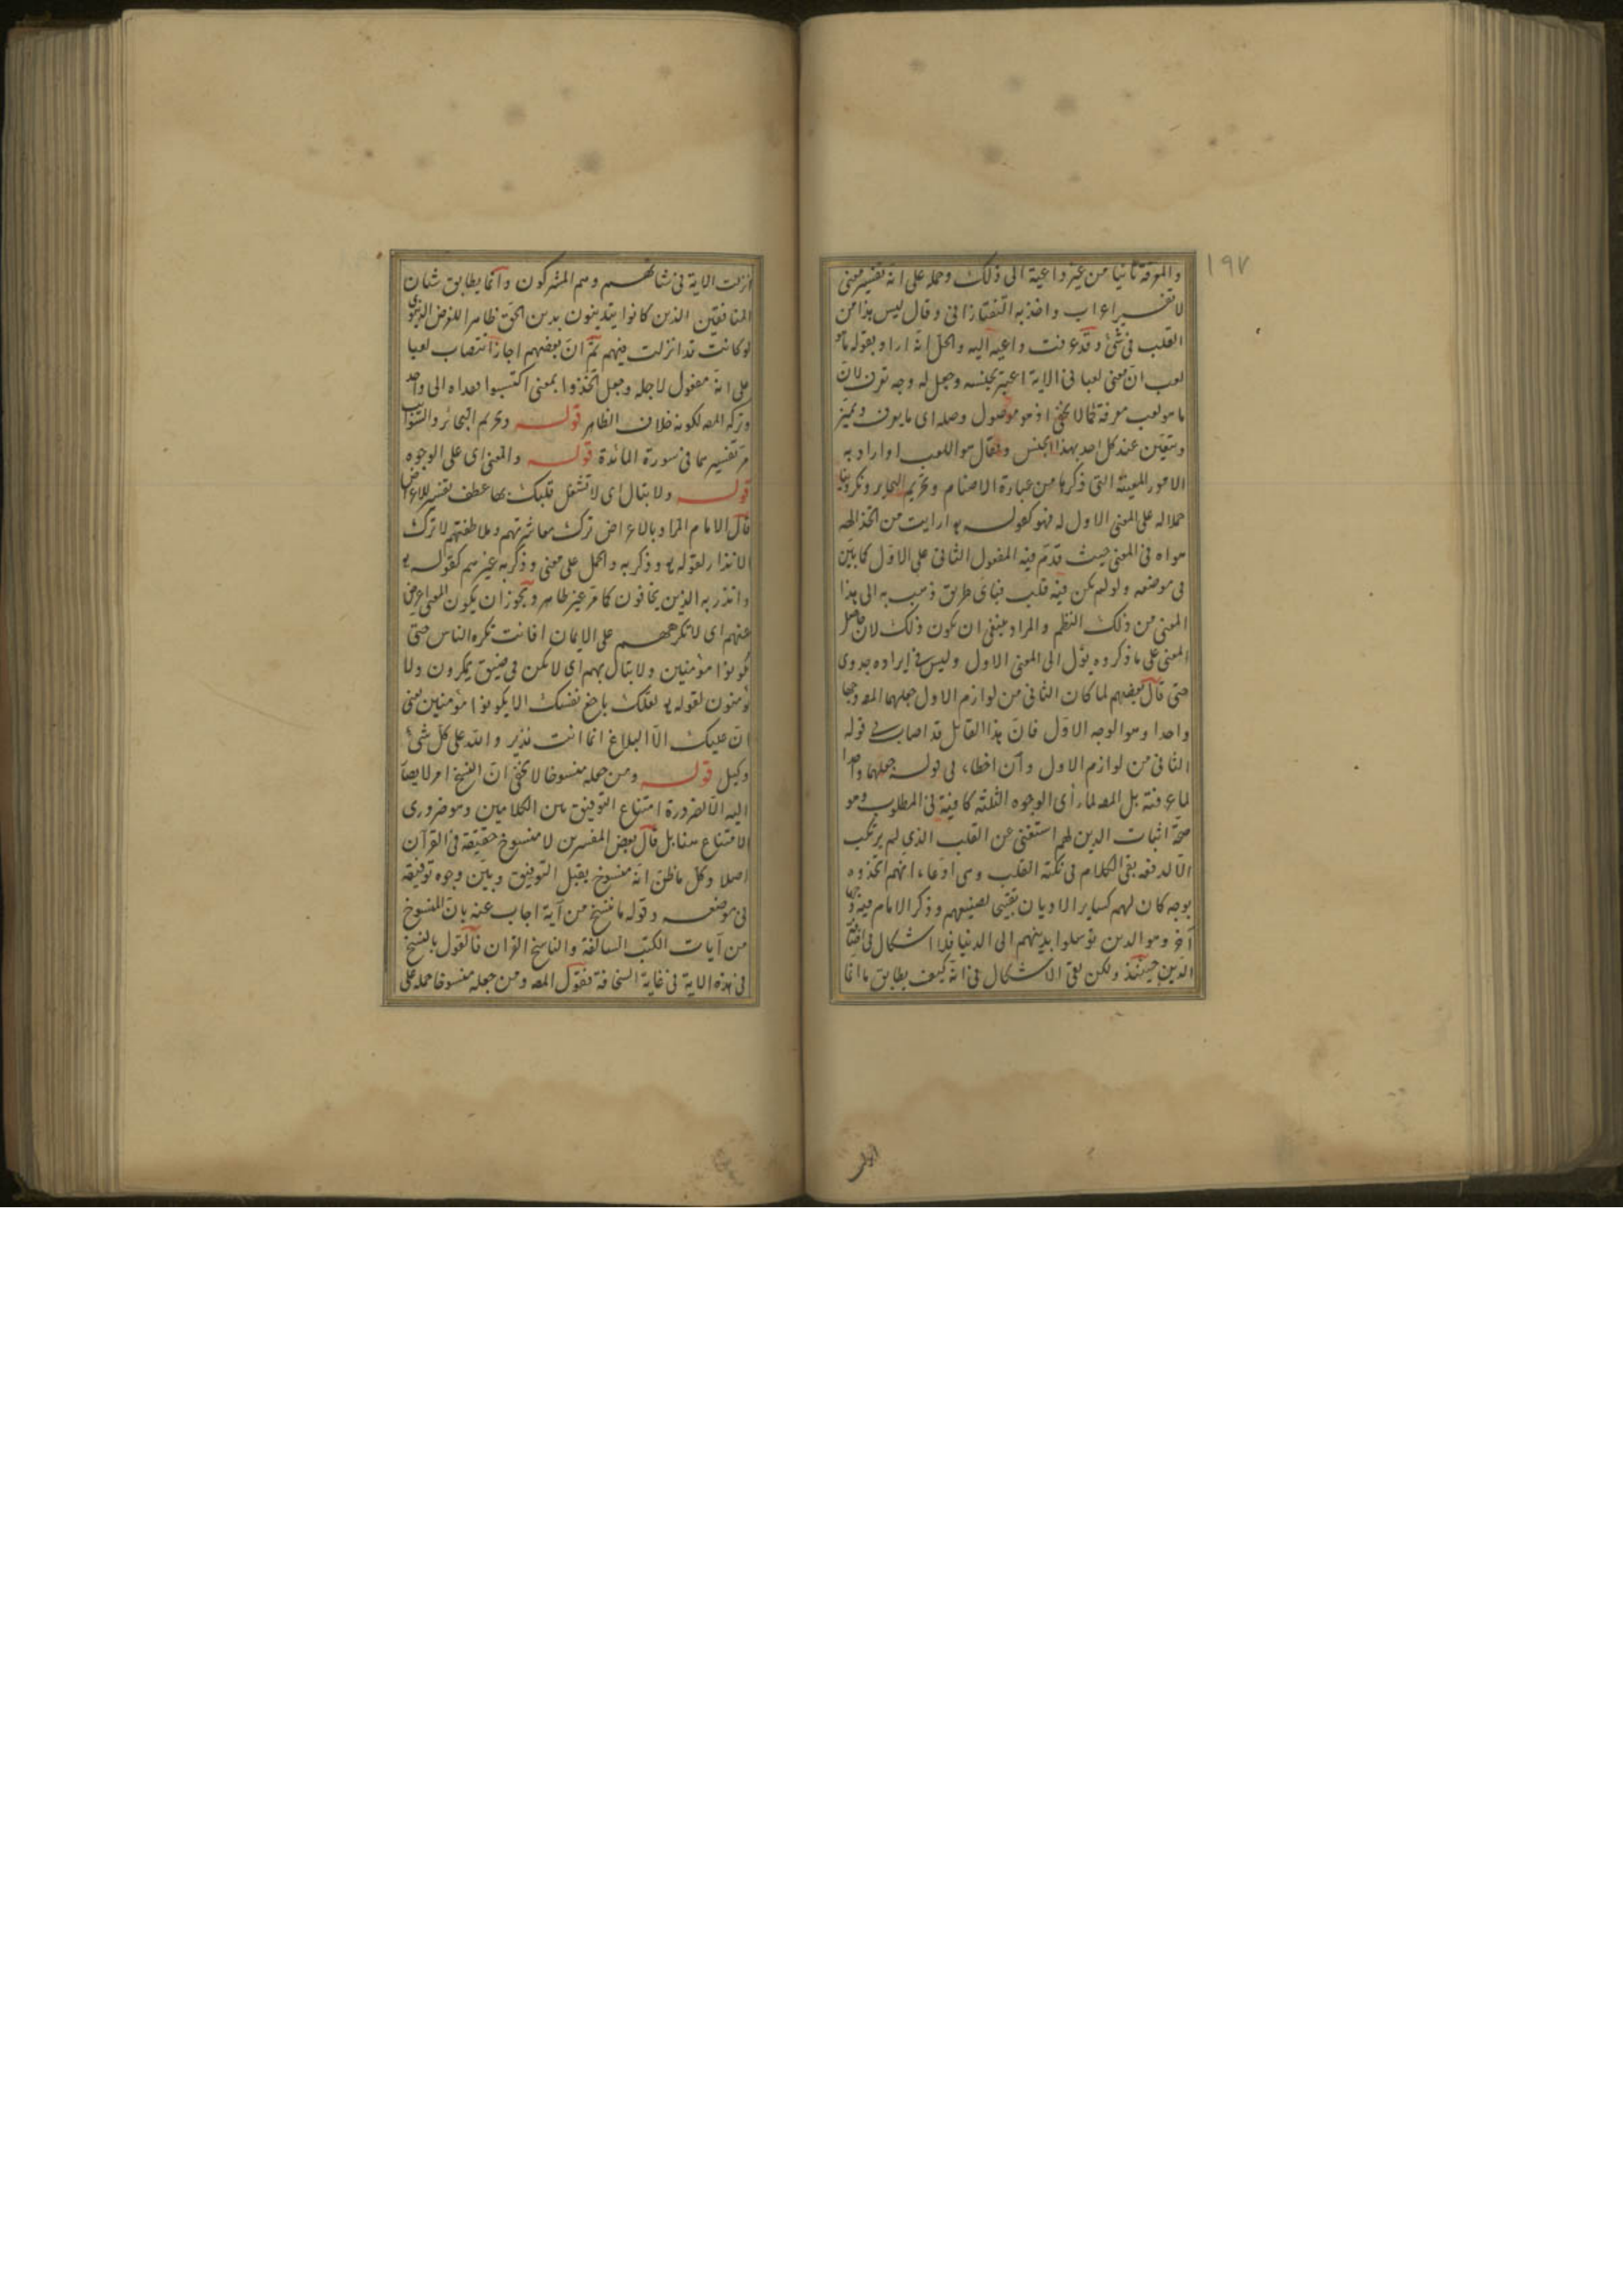 ١٩٧
والمعرفة ثانيا من غير داعية الى ذلك وحمله على انه تفسير معنى
لا تفسير اعراب واخذ به التفتازانى وقال ليس هذا من
القلب فى شئ وقد عرفت داعيه اليه والحل انه اراد بقوله ما هو
لعب ان معنى لعبا فى الاية اعتبر بجنسه وجعل له وجه تعرف لان
ما هو لعب معرفة كما لا يخفى اذ هو موصول وصله اى ما يعرف ويميز
ويتعين عند كل احد بهذا الجنس ويقال هو اللعب او اراد به
الامور المعينة التى ذكرها من عبادة الاصنام وتحريم البحاير ونكر
حملا له على المعنى الاول له فهو كقوله ارايت من اتخذ الهه
هواه فى المعنى حيث قدم فيه المفعول الثانى على الاول كما بين
فى موضعه ولو لم يكن فيه قلب فباى طريق ذهب به الى هذا
المعنى من ذلك النظم والمراد ينبغى ان يكون ذلك لان حاصل
المعنى على ما ذكروه يؤل الى المعنى الاول وليس فى ايراده جدوى
حتى قال بعضهم لما كان الثانى من لوازم الاول جعلهما المص وجها
واحدا وهو الوجه الاول فان هذا القايل قد اصاب فى قوله
الثانى من لوازم الاول وان اخطاء فى قوله جعلهما واحدا
لما عرفته بل المص لما رأى الوجوه الثلثة كافية فى المطلوب وهو
صحة اثبات الدين لهم استغنى عن القلب الذى لم يرتكب
الا لدفعه بقى الكلام فى نكتة القلب وهى ادعاء انهم اتخذوه
بوجه كان لهم كساير الاديان تقبيحا لصنيعهم وذكر الامام فيه وجها
آخر وهو الدين توسلوا بدينهم الى الدنيا فلا اشكال فى
الدين حينئذ ولكن بقى الاشكال فى انه كيف يطابق ما انما
انزلت
انزلت الاية فى شانهم وهم المشركون وانما يطابق شان
المنافقين الذين كانوا يتدينون بدين الحق ظاهرا للغرض الدنيوى
لو كانت قد انزلت فيهم ثم ان بعضهم اجاز انتصاب لعبا
على انه مفعول لاجله وجعل اتخذوا بمعنى اكتسبوا فعداه الى واحد
وتركه المص لكونه خلاف الظاهر قوله وتحريم البحائر والسوائب
مر تفسيرها فى سورة المائدة قوله والمعنى اى على الوجوه
قوله ولا تبال اى لا تشغل قلبك بها عطف تفسير للاعراض
قال الامام المراد بالاعراض ترك معاشرتهم وملاطفتهم لا ترك
الانذار لقوله وذكر به والحمل على معنى وذكر به غيرهم كقوله
وانذر به الذين يخافون كما مر غير ظاهر ويجوز ان يكون المعنى اعرض
عنهم اى لا تكرههم على الايمان افانت تكره الناس حتى
يكونوا مؤمنين ولا تبال بهم اى لا تكن فى ضيق يمكرون ولا
يؤمنون لقوله لعلك باخع نفسك الا يكونوا مؤمنين يعنى
ان عليك الا البلاغ انما انت نذير والله على كل شئ
وكيل قوله ومن جعله منسوخا لا يخفى ان النسخ امر لا يصار
اليه الا لضرورة امتناع التوفيق بين الكلامين وهو ضرورى
الامتناع هنا بل قال بعض المفسرين لا منسوخ حقيقة فى القرآن
اصلا وكل ما ظن انه منسوخ يقبل التوفيق وبين وجوه توفيقه
فى موضعه وقوله ما ننسخ من آية اجاب عنه بان المنسوخ
من آيات الكتب السالفة والناسخ القران فالقول بالنسخ
فى هذه الاية فى غاية السخافة فقول المص ومن جعله منسوخا حمله على